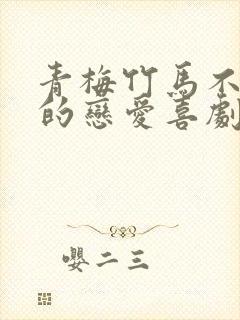 青梅竹馬不
的戀愛喜劇
嬰二三